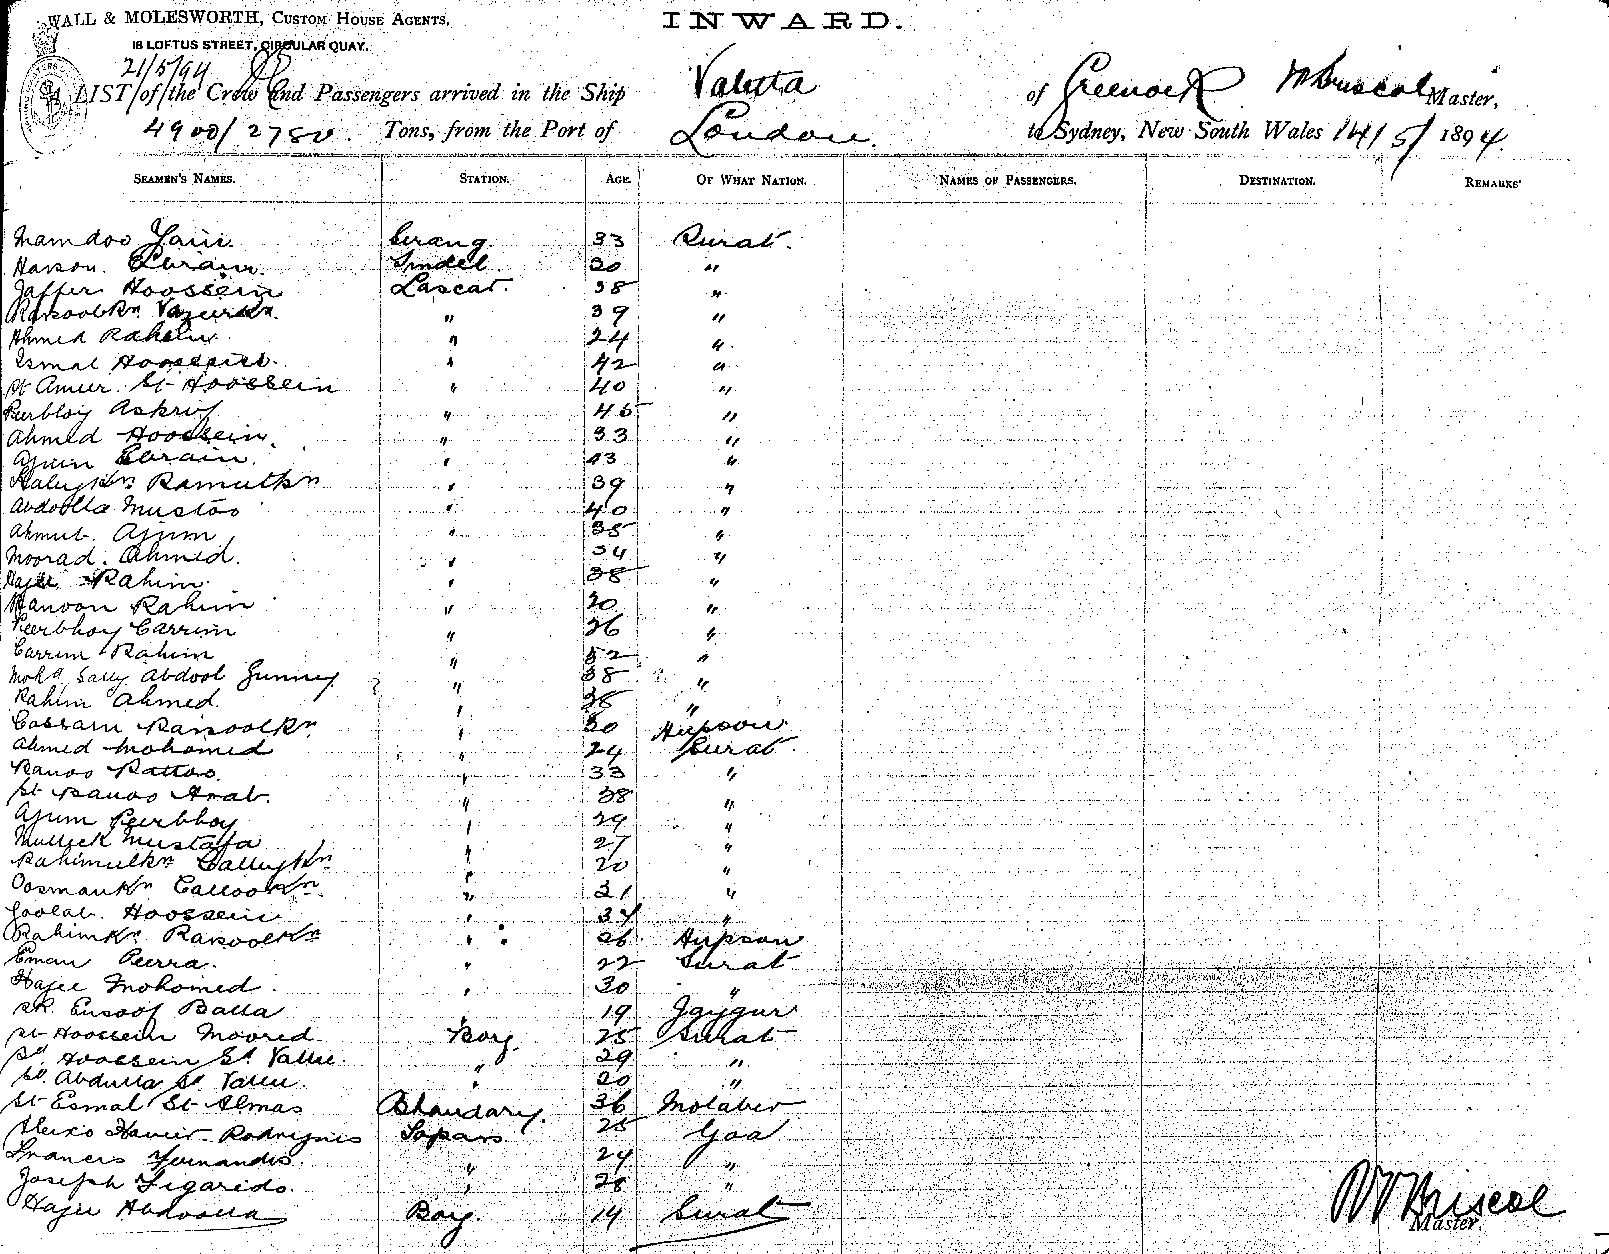 WALL & MOLESWORTH, CUSTOM HOUSE AGENTS,
18 LOFTUS STREET, CIRCULAR QUAY.
INWARD.
21/5/94
LIST of the Crew and Passengers arrived in the Ship Valetta of Greenock Briscoe Master,
4900/2780 Tons, from the Port of London to Sydney, New South Wales 14/5/1894.
SEAMEN'S NAMES. STATION. AGE. OF WHAT NATION. NAMES OF PASSENGERS. DESTINATION. REMARKS
Mamdoo Serang 33 Surat.
Hasson Ebraim Tindel 30 "
Jaffer Hoossein Lascar 38 "
" 39 "
Ahmed Rahim " 24 "
Esmal Hoossein " 42 "
St Ameer St Hoossein " 40 "
Peerbhoy " 45 "
Ahmed Hoossein " 33 "
Ajum Ebraim " 43 "
" 39 "
Abdoolla " 40 "
Ahmut Ajum " 38 "
Moorad Ahmed " 34 "
Rahim " 38 "
Rahim " 20 "
Peerbhoy Carrim " 26 "
Carrim Rahim " 52 "
Mohd Sally Abdool Gunney " 38 "
Rahim Ahmed " 38 "
Cassam RasoolKn " 30
Ahmed Mohomed " 24 Surat
Rattoo " 33 "
St Arab " 38 "
Ajum Peerbhoy " 29 "
Mullick Mustafa " 27 "
" 20 "
OosmanKn CallooKn " 21 "
Goolab Hoossein " 34 "
RahimKn RasoolKn " 26
Eman Peerra " 22 Surat
Hajee Mohomed " 30 "
Sk Eusoof Balla " 19 Jaygur
St Hoossein Moored Boy 25 Surat
Sd Hoossein Sd Vallee " 29 "
Sd Abdulla Sd Vallee " 20 "
St Esmal St Almas Bhandary 36 Molaber
Rodrigues Topass 25 Goa
Francis Fernandis " 24 "
Joseph Figaredo " 28 "
Hajee Abdoolla Boy 14 Surat
Briscoe
Master.